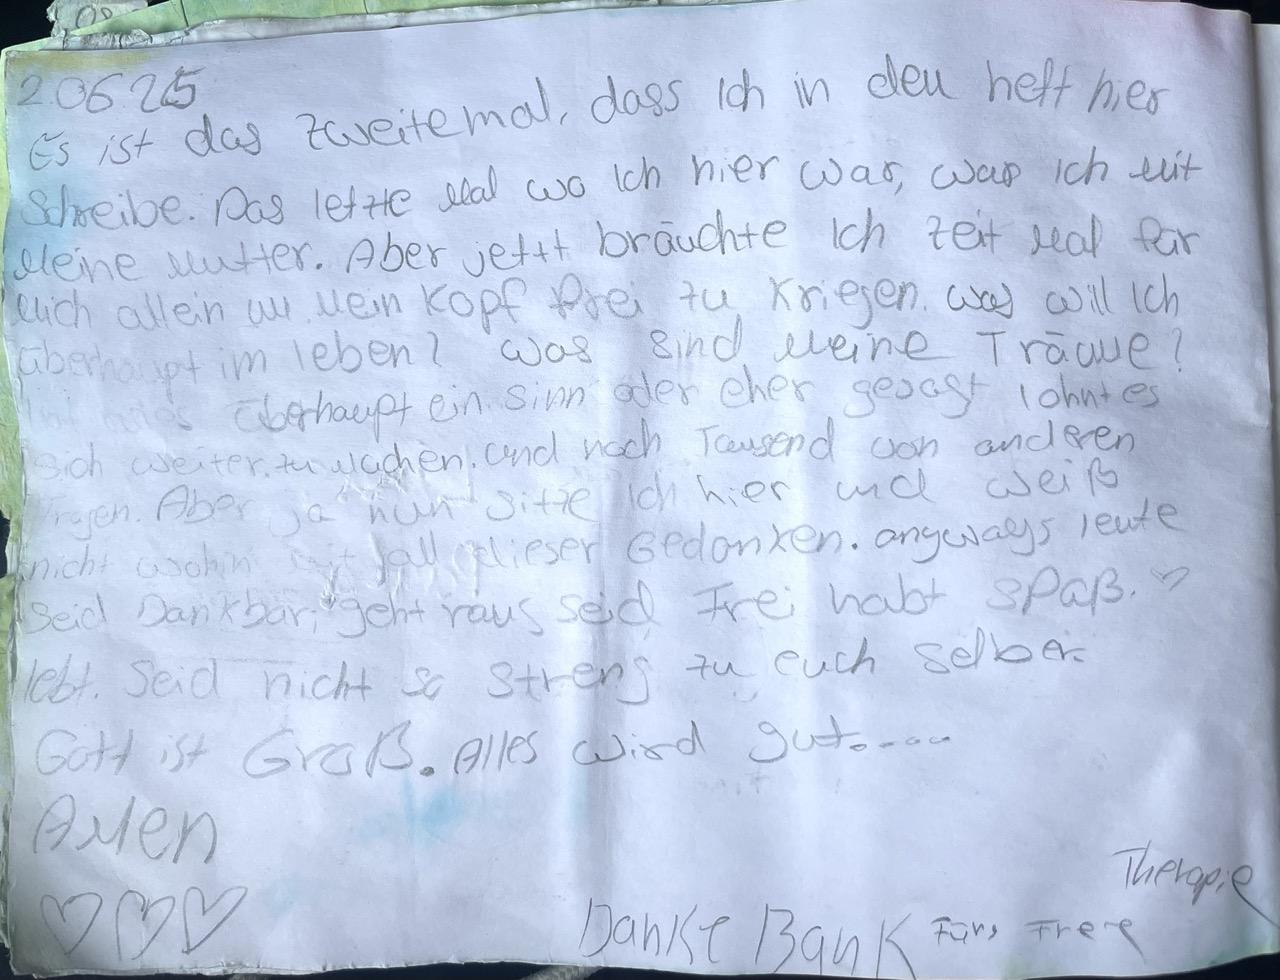 08
2.06.25
Es ist das zweitemal, dass Ich in den heft hier
Schreibe. Das letzte Mal wo Ich hier war, war ich mit
Meine Mutter. Aber jettt bräuchte Ich zeit Mal für
Mich allein um Mein Kopf frei zu Kriegen. was will Ich
überhaupt im leben? was sind Meine Träume?
überhaupt ein Sinn oder eher gesagt lohnt es
sich weiter zu Machen. und noch Tausend von anderen
Fragen. Aber ja nun sitze Ich hier und weiß
nicht wohin mit all dieser Gedanken. anyways leute
Seid Dankbar, geht raus seid Frei habt SPaß. ♡
lebt. Seid nicht so streng zu euch selber.
Gott ist Groß. Alles wird gut.....
AMen
♡♡♡
Therapie
Danke Bank Fürs Freie